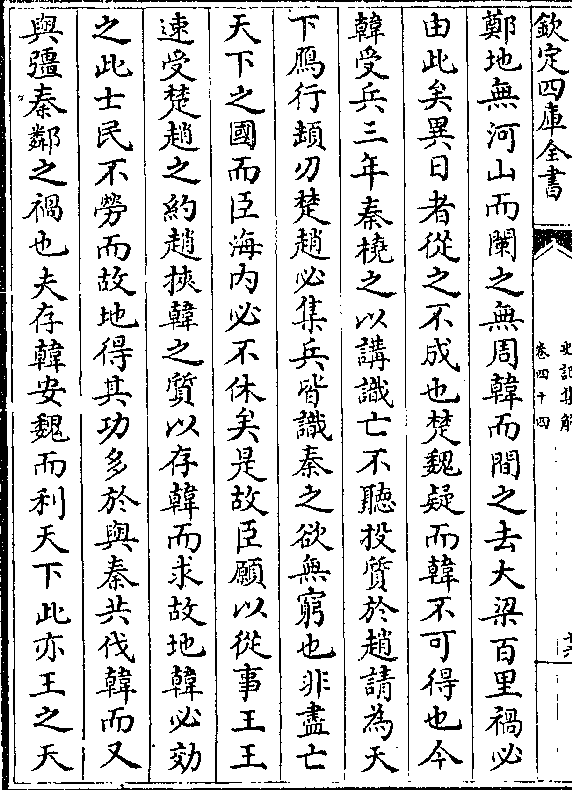 欽定四庫全書
史記集解
卷四十四
十六
鄭地無河山而闌之無周韓而間之去大梁百里禍必
由此矣異日者從之不成也楚魏疑而韓不可得也今
韓受兵三年秦橈之以講識亡不聽投質於趙請為天
下鴈行頓刃楚趙必集兵皆識秦之欲無窮也非盡亡
天下之國而臣海内必不休矣是故臣願以從事王王
速受楚趙之約趙挾韓之質以存韓而求故地韓必効
之此士民不勞而故地得其功多於與秦共伐韓而又
與彊秦鄰之禍也夫存韓安魏而利天下此亦王之天